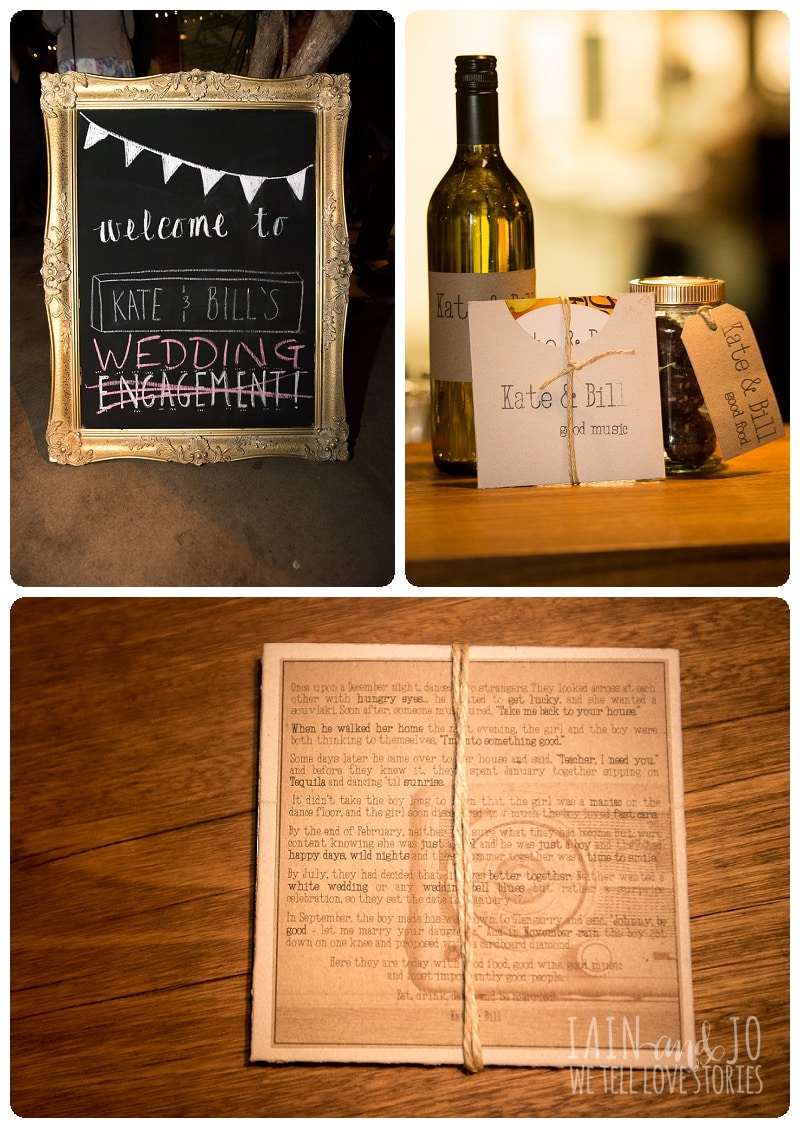 welcome to
KATE & BILL'S
WEDDING
ENGAGEMENT!
Kate & Bill
Kate & Bill
good music
Kate & Bill
good food
Once upon a December night, danced two strangers. They looked across at each
other with hungry eyes... he wanted to get lucky, and she wanted a
souvlaki. Soon after, someone "Take me back to your house."
When he walked her home the evening, the girl and the boy were
both thinking to themselves, "I'm into something good."
Some days later he came over to her house and said, "Teacher, I need you."
and before they knew it, they spent January together sipping on
Tequila and dancing 'til sunrise.
It didn't take the boy long to that the girl was a maniac on the
dance floor, and the girl soon much the boy loved fast cars.
By the end of February, neither sure what they had become but were
content knowing she was just a girl and he was just a boy and they had
happy days, wild nights and their summer together was a time to smile.
By July, they had decided that better together. Neither wanted a
white wedding or any wedding bell blues but rather a surprise
celebration, so they set the date for January
In September, the boy made his way down to Glengarry and said, "Johnny, be
good - let me marry your daughter." And in November rain the boy got
down on one knee and proposed with a cardboard diamond.
Here they are today with good food, good wine, good music
and most importantly good people.
Eat, drink, and be
Kate & Bill
IAIN and JO
WE TELL LOVE STORIES